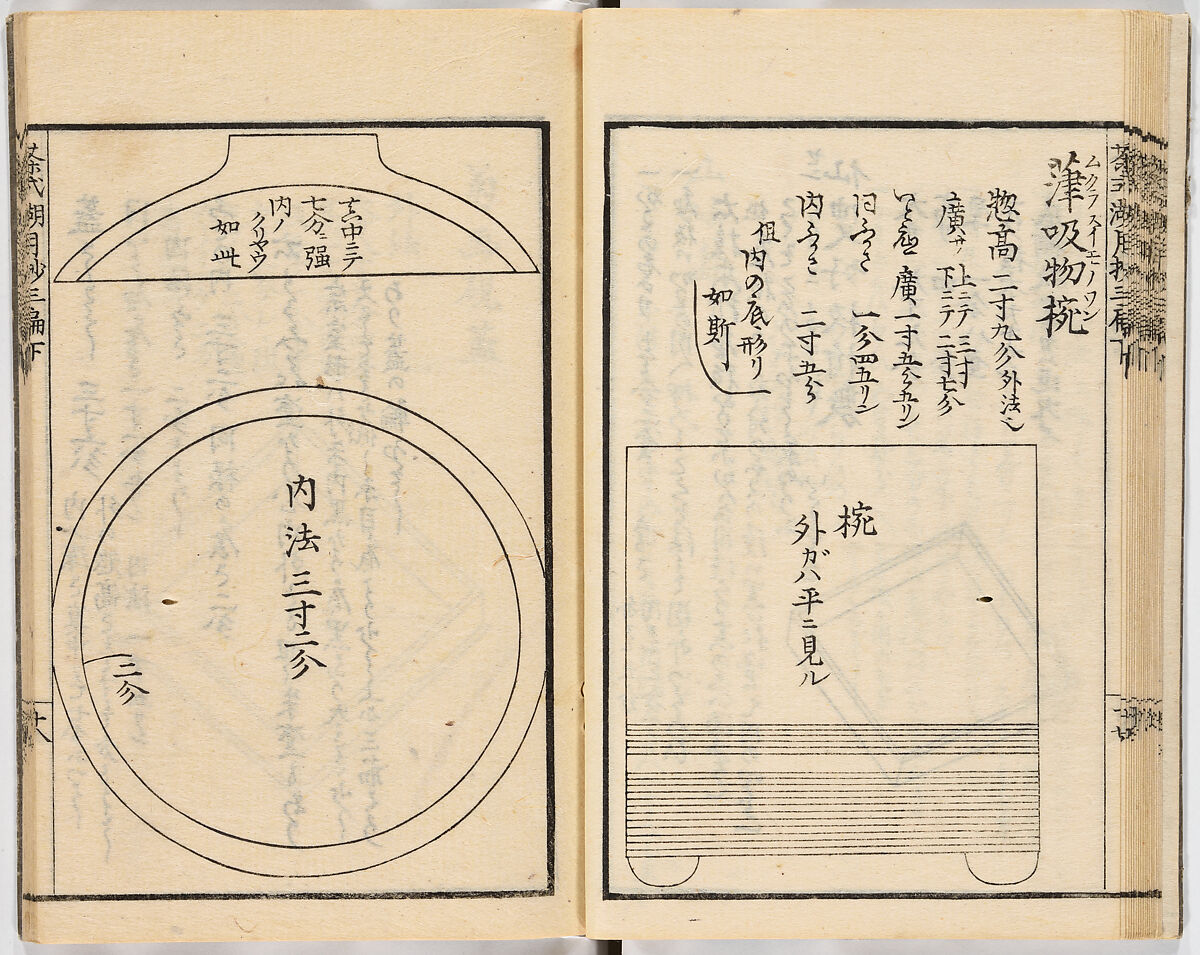 葎吸物椀
ムクラスイモノワン
惣高二寸九分外法也
廣サ 上ニテ三寸
下ニテ二寸七分
廣一寸五分五リン
一分四五リン
内ふかさ 二寸五分
但内の底形り
如斯
椀
外ガハ平ニ見ル
真中ニテ
七分ニ強
内ノ
クリヤウ
如此
内法三寸二分
二分
茶式湖月抄三編下